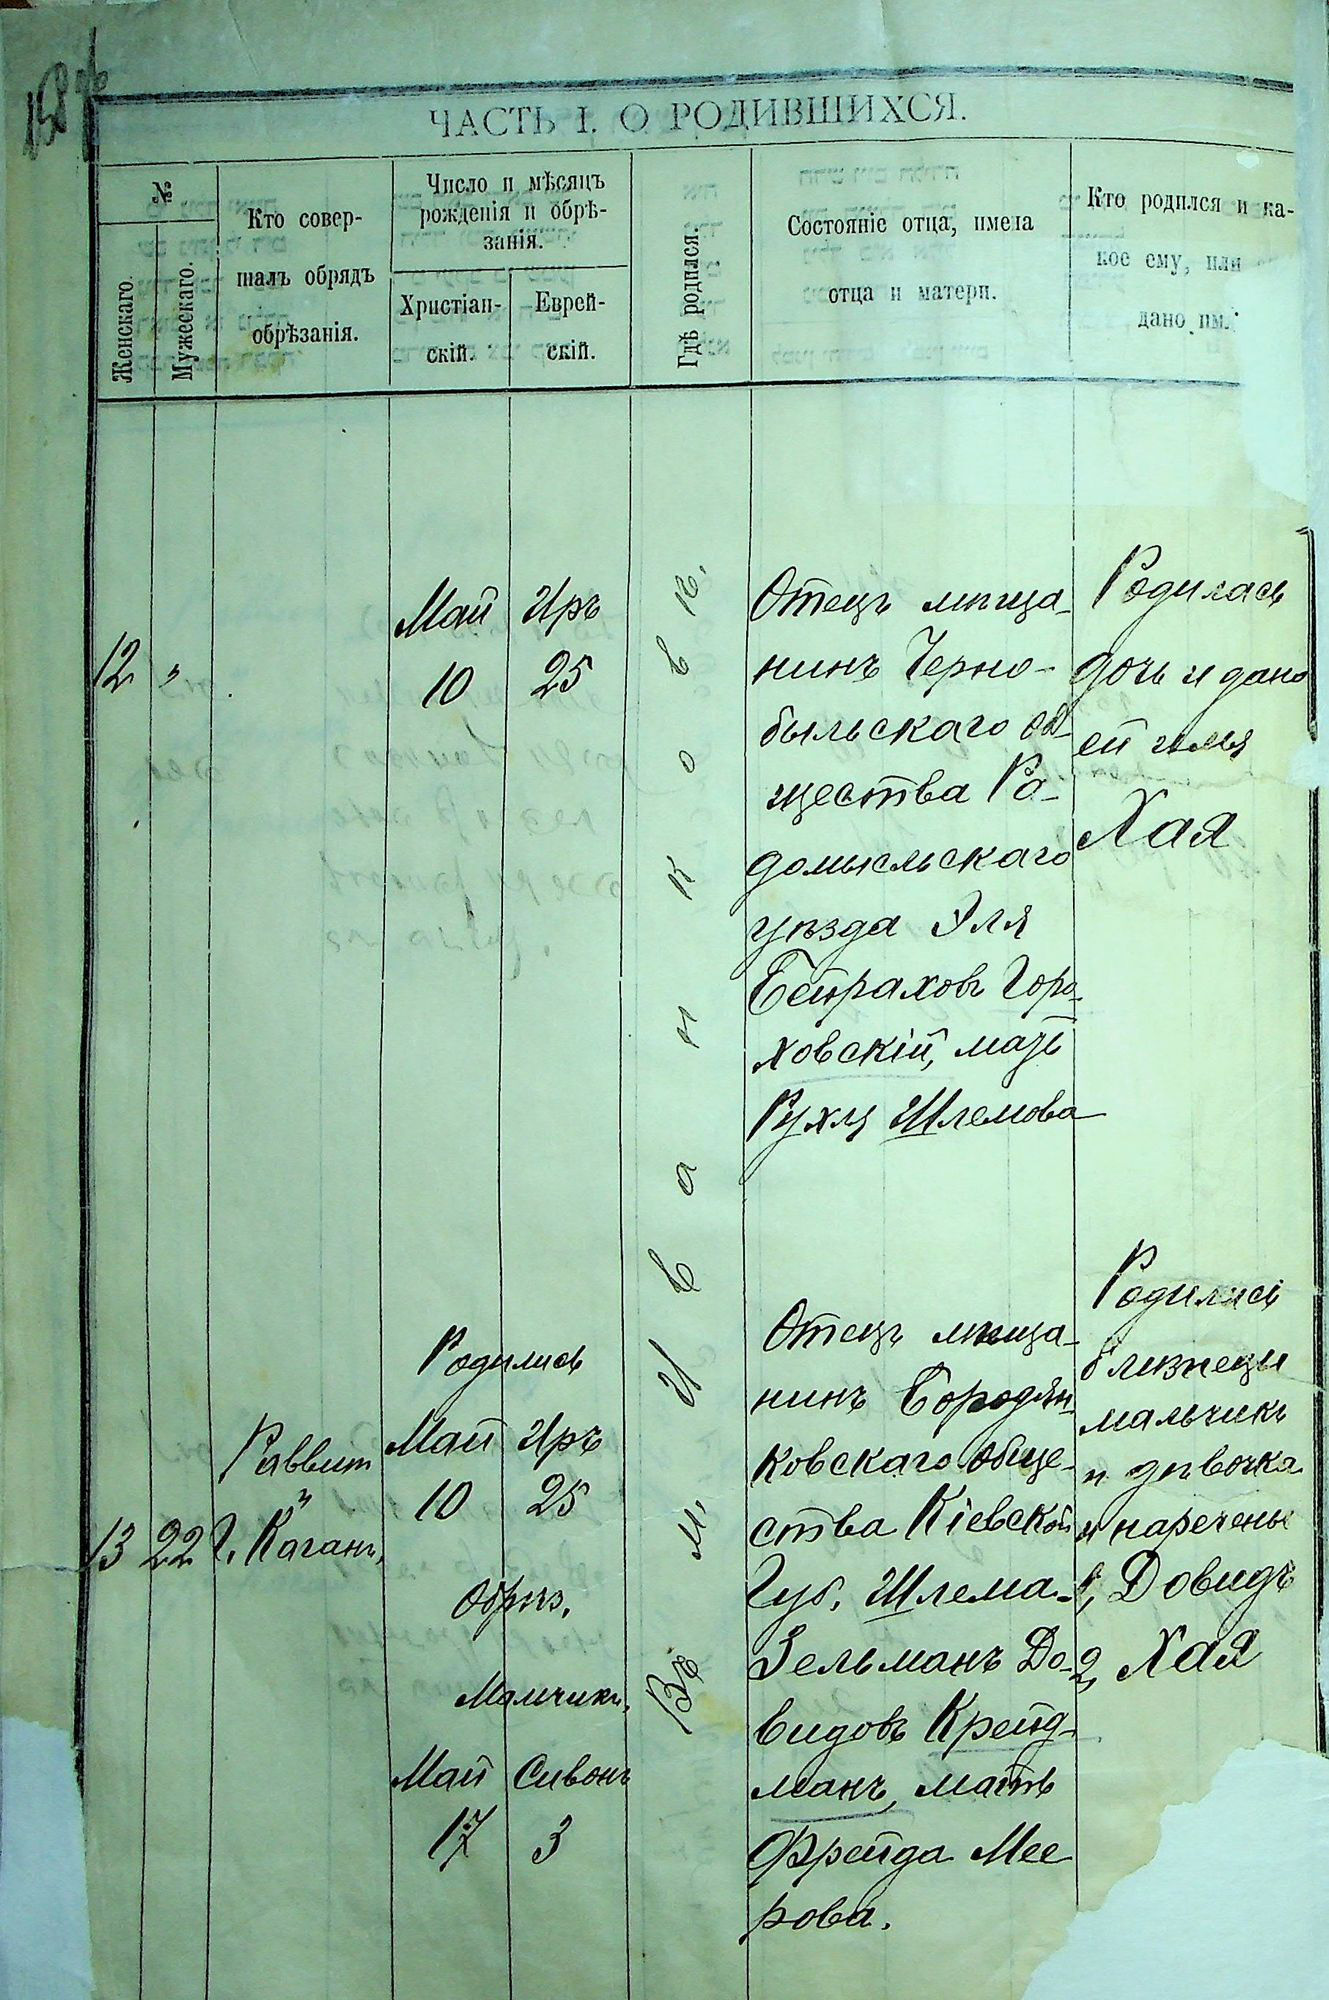 158 об
ЧАСТЬ I. О РОДИВШИХСЯ.
№
Женскаго.
Мужескаго.
Кто совер-
шалъ обрядъ
обрѣзанія.
Число и мѣсяцъ
рожденія и обрѣ-
занія.
Христіан-
скій.
Еврей-
скій.
Гдѣ родился.
Состояніе отца, имена
отца и матери.
Кто родился и ка-
кое ему, или
дано им.
12
"
Май
10
Иръ
25
Въ м. Иванковѣ.
Отецъ мѣща-
нинъ Черно-
быльскаго об-
щества Ра-
домысльскаго
уѣзда Эля
Бейрахов Горо-
ховскій, мать
Рухля Шлемова
Родилась
дочь и дано
ей имя
Хая
13
22
Раввин
Г. Каганъ,
Родились
Май
10
Иръ
25
Обрѣз.
Мальчикъ,
Май
17
Сивонъ
3
Отецъ мѣща-
нинъ Бородян-
ковскаго обще-
ства Кіевской
Губ. Шлема-
Зельманъ До-
видовъ Крейд-
манъ, мать
Фрейда Мее
рова.
Родились
близнецы
мальчикъ
и дѣвочка
и наречены
1, Довидъ
2, Хая